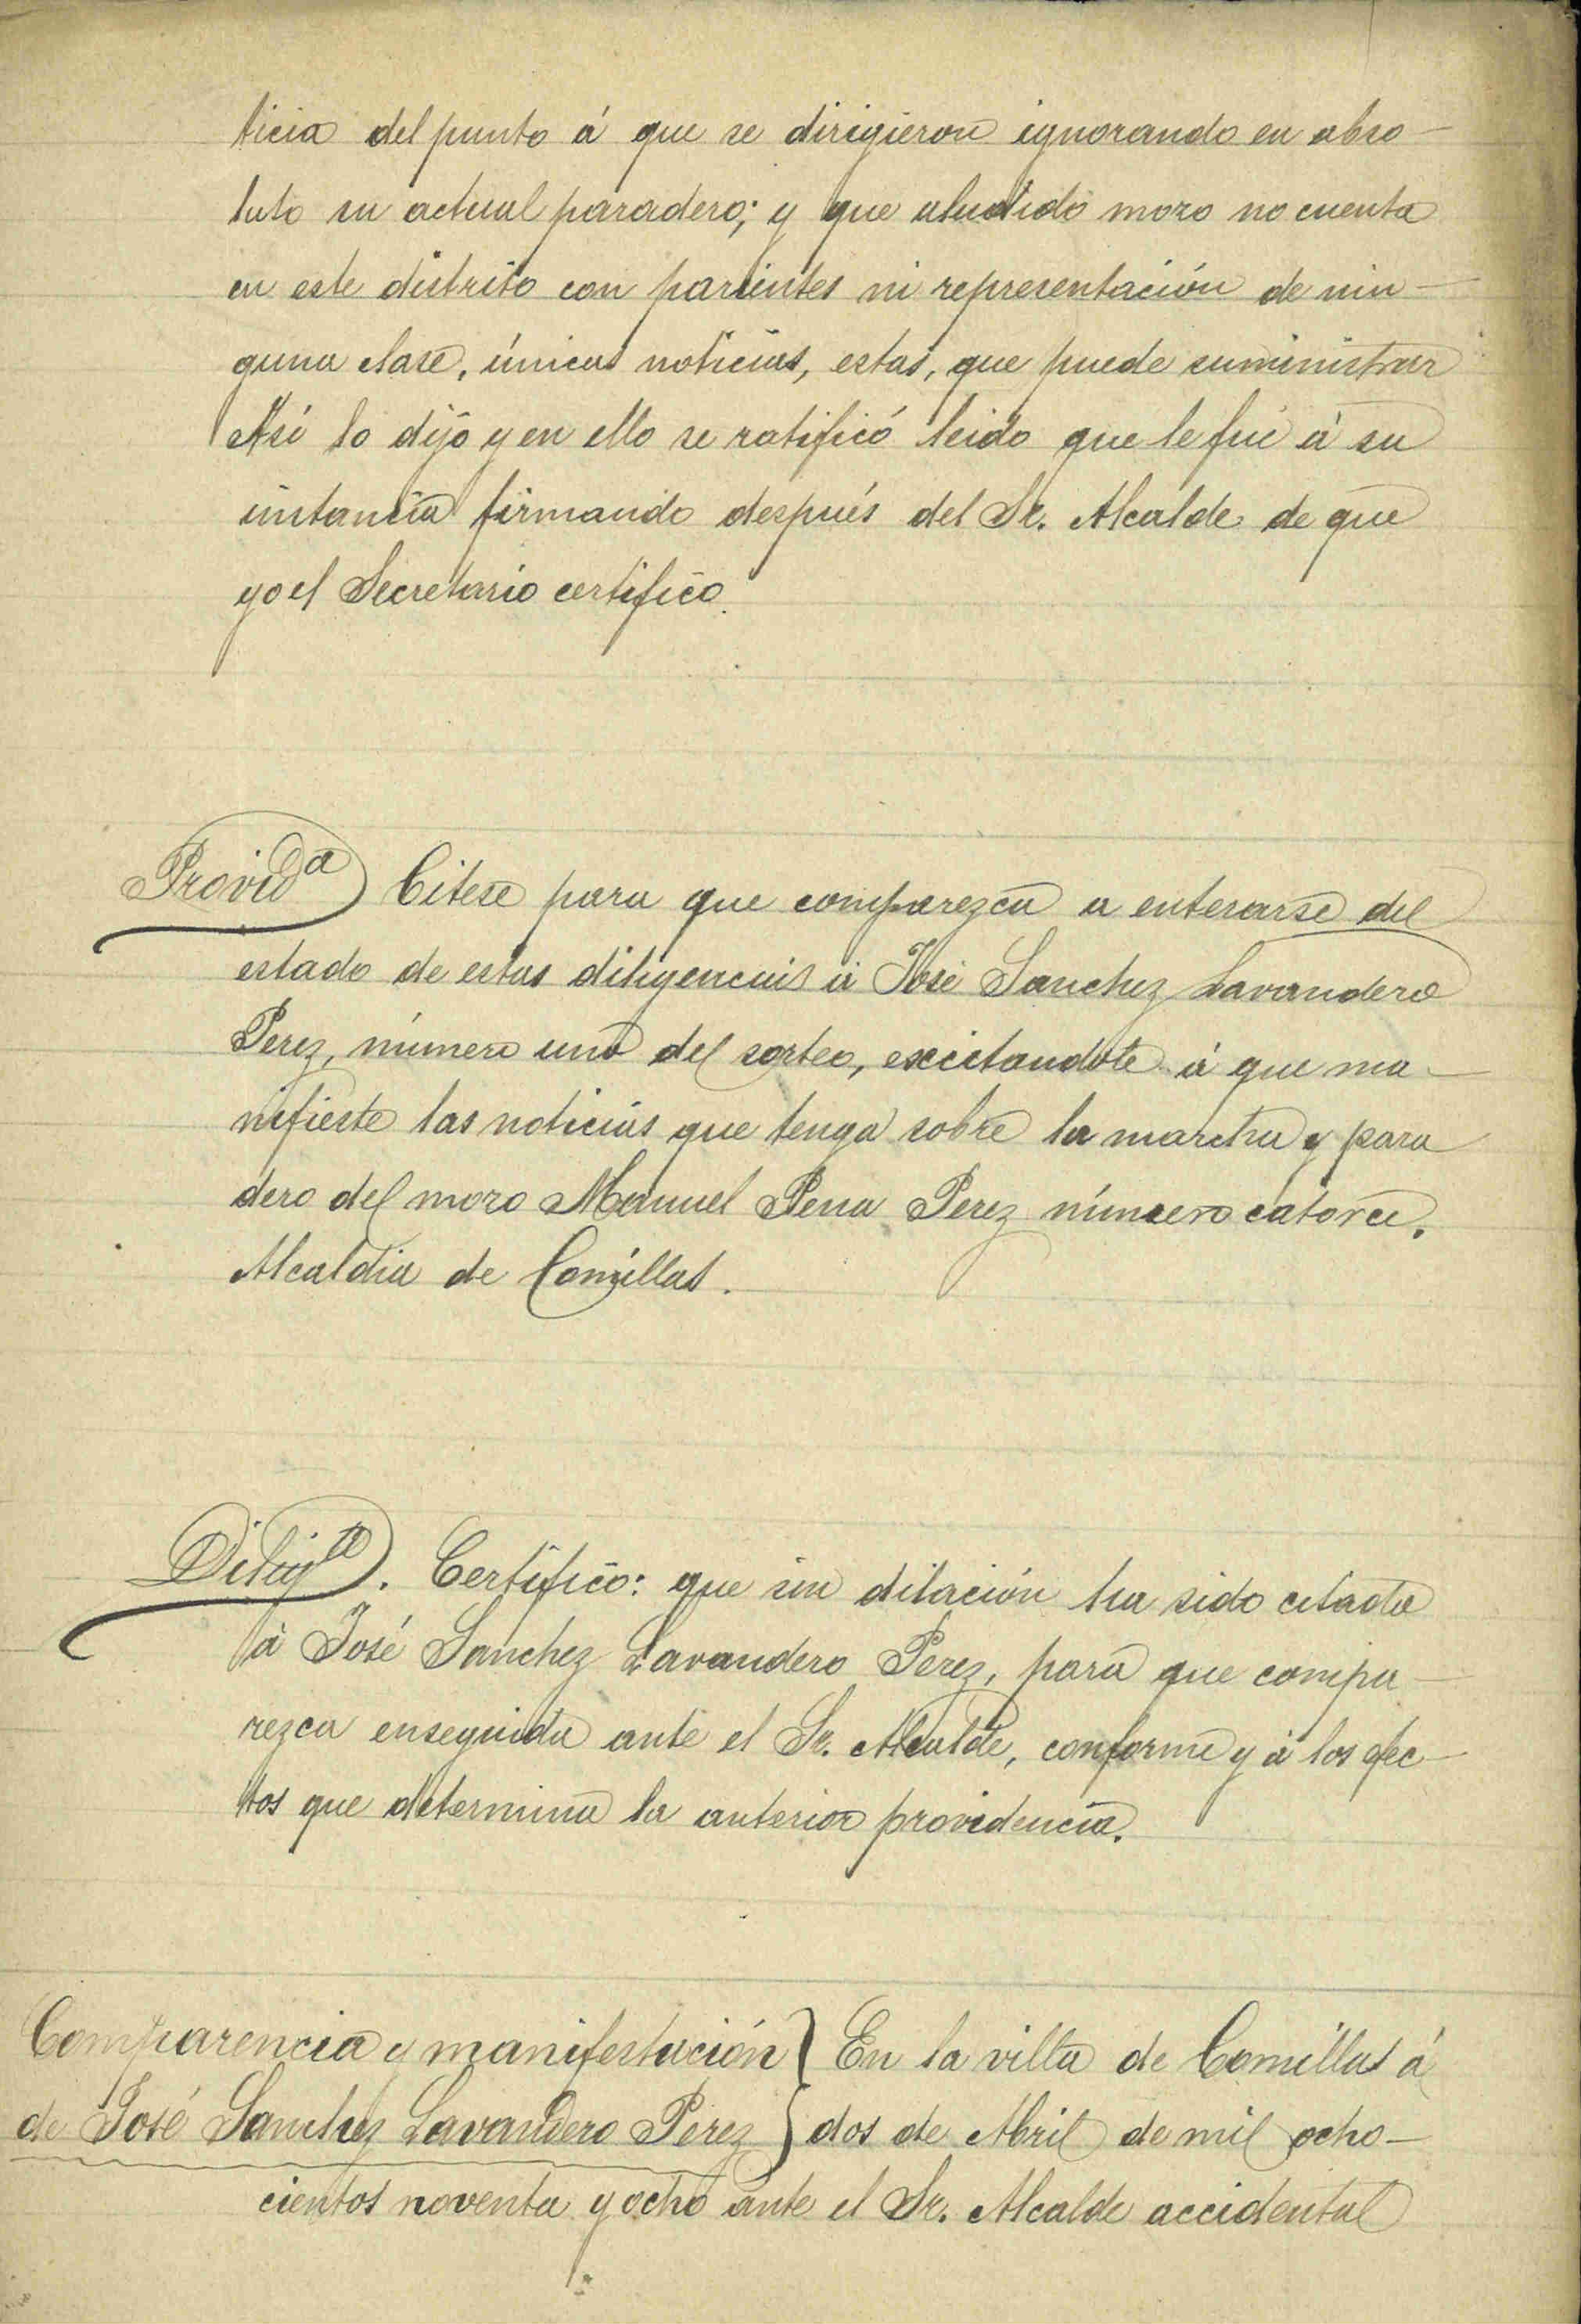 ticia del punto á que se dirigieron ignorando en abso-
luto su actual paradero; y que aludido mozo no cuenta
en este distrito con parientes ni representación de nin-
guna clase, únicas noticias, estas, que puede suministrar
Así lo dijo y en ello se ratificó leido que le fué á su
instancia firmando después del Sr. Alcalde de que
yo el Secretario certifico.
Provid.a Citese para que comparezca a enterarse del
estado de estas diligencias á José Sanchez Lavandero
Perez, número uno del sorteo, excitandole á que ma-
nifieste las noticias que tenga sobre la marcha y para
dero del mozo Manuel Pena Perez número catorce.
Alcaldia de Comillas.
Dilig.a. Certifico: que sin dilación ha sido citado
á José Sanchez Lavandero Perez, para que compa-
rezca enseguida ante el Sr. Alcalde, conforme y á los efec-
tos que determina la anterior providencia.
Comparencia y manifestación } En la villa de Comillas á
de José Sanchez Lavandero Perez } dos de Abril de mil ocho-
cientos noventa y ocho ante el Sr. Alcalde accidental